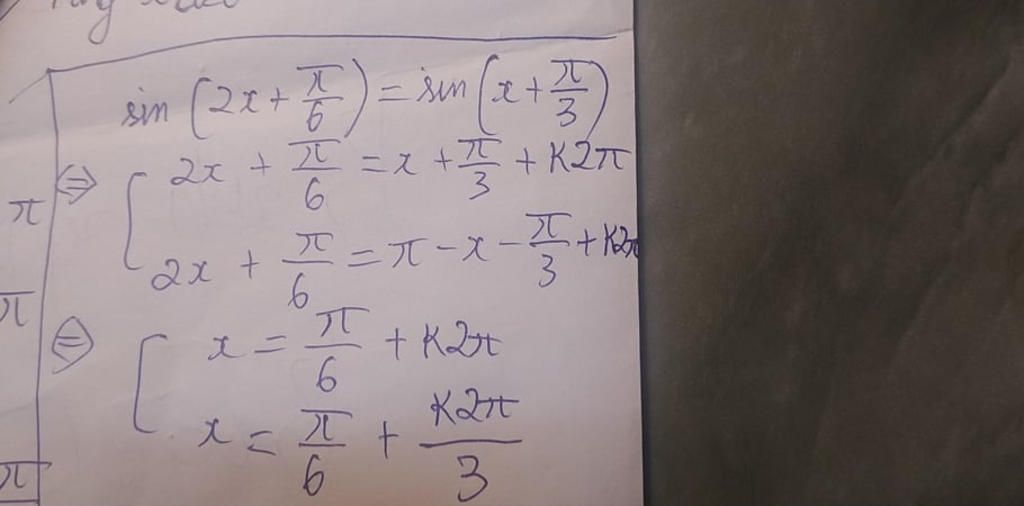 sin (2x + π/6) = sin (x + π/3)
⇔ [ 2x + π/6 = x + π/3 + K2π
2x + π/6 = π - x - π/3 + K2π
⇔ [ x = π/6 + K2π
x = π/6 + K2π/3
π
π
π